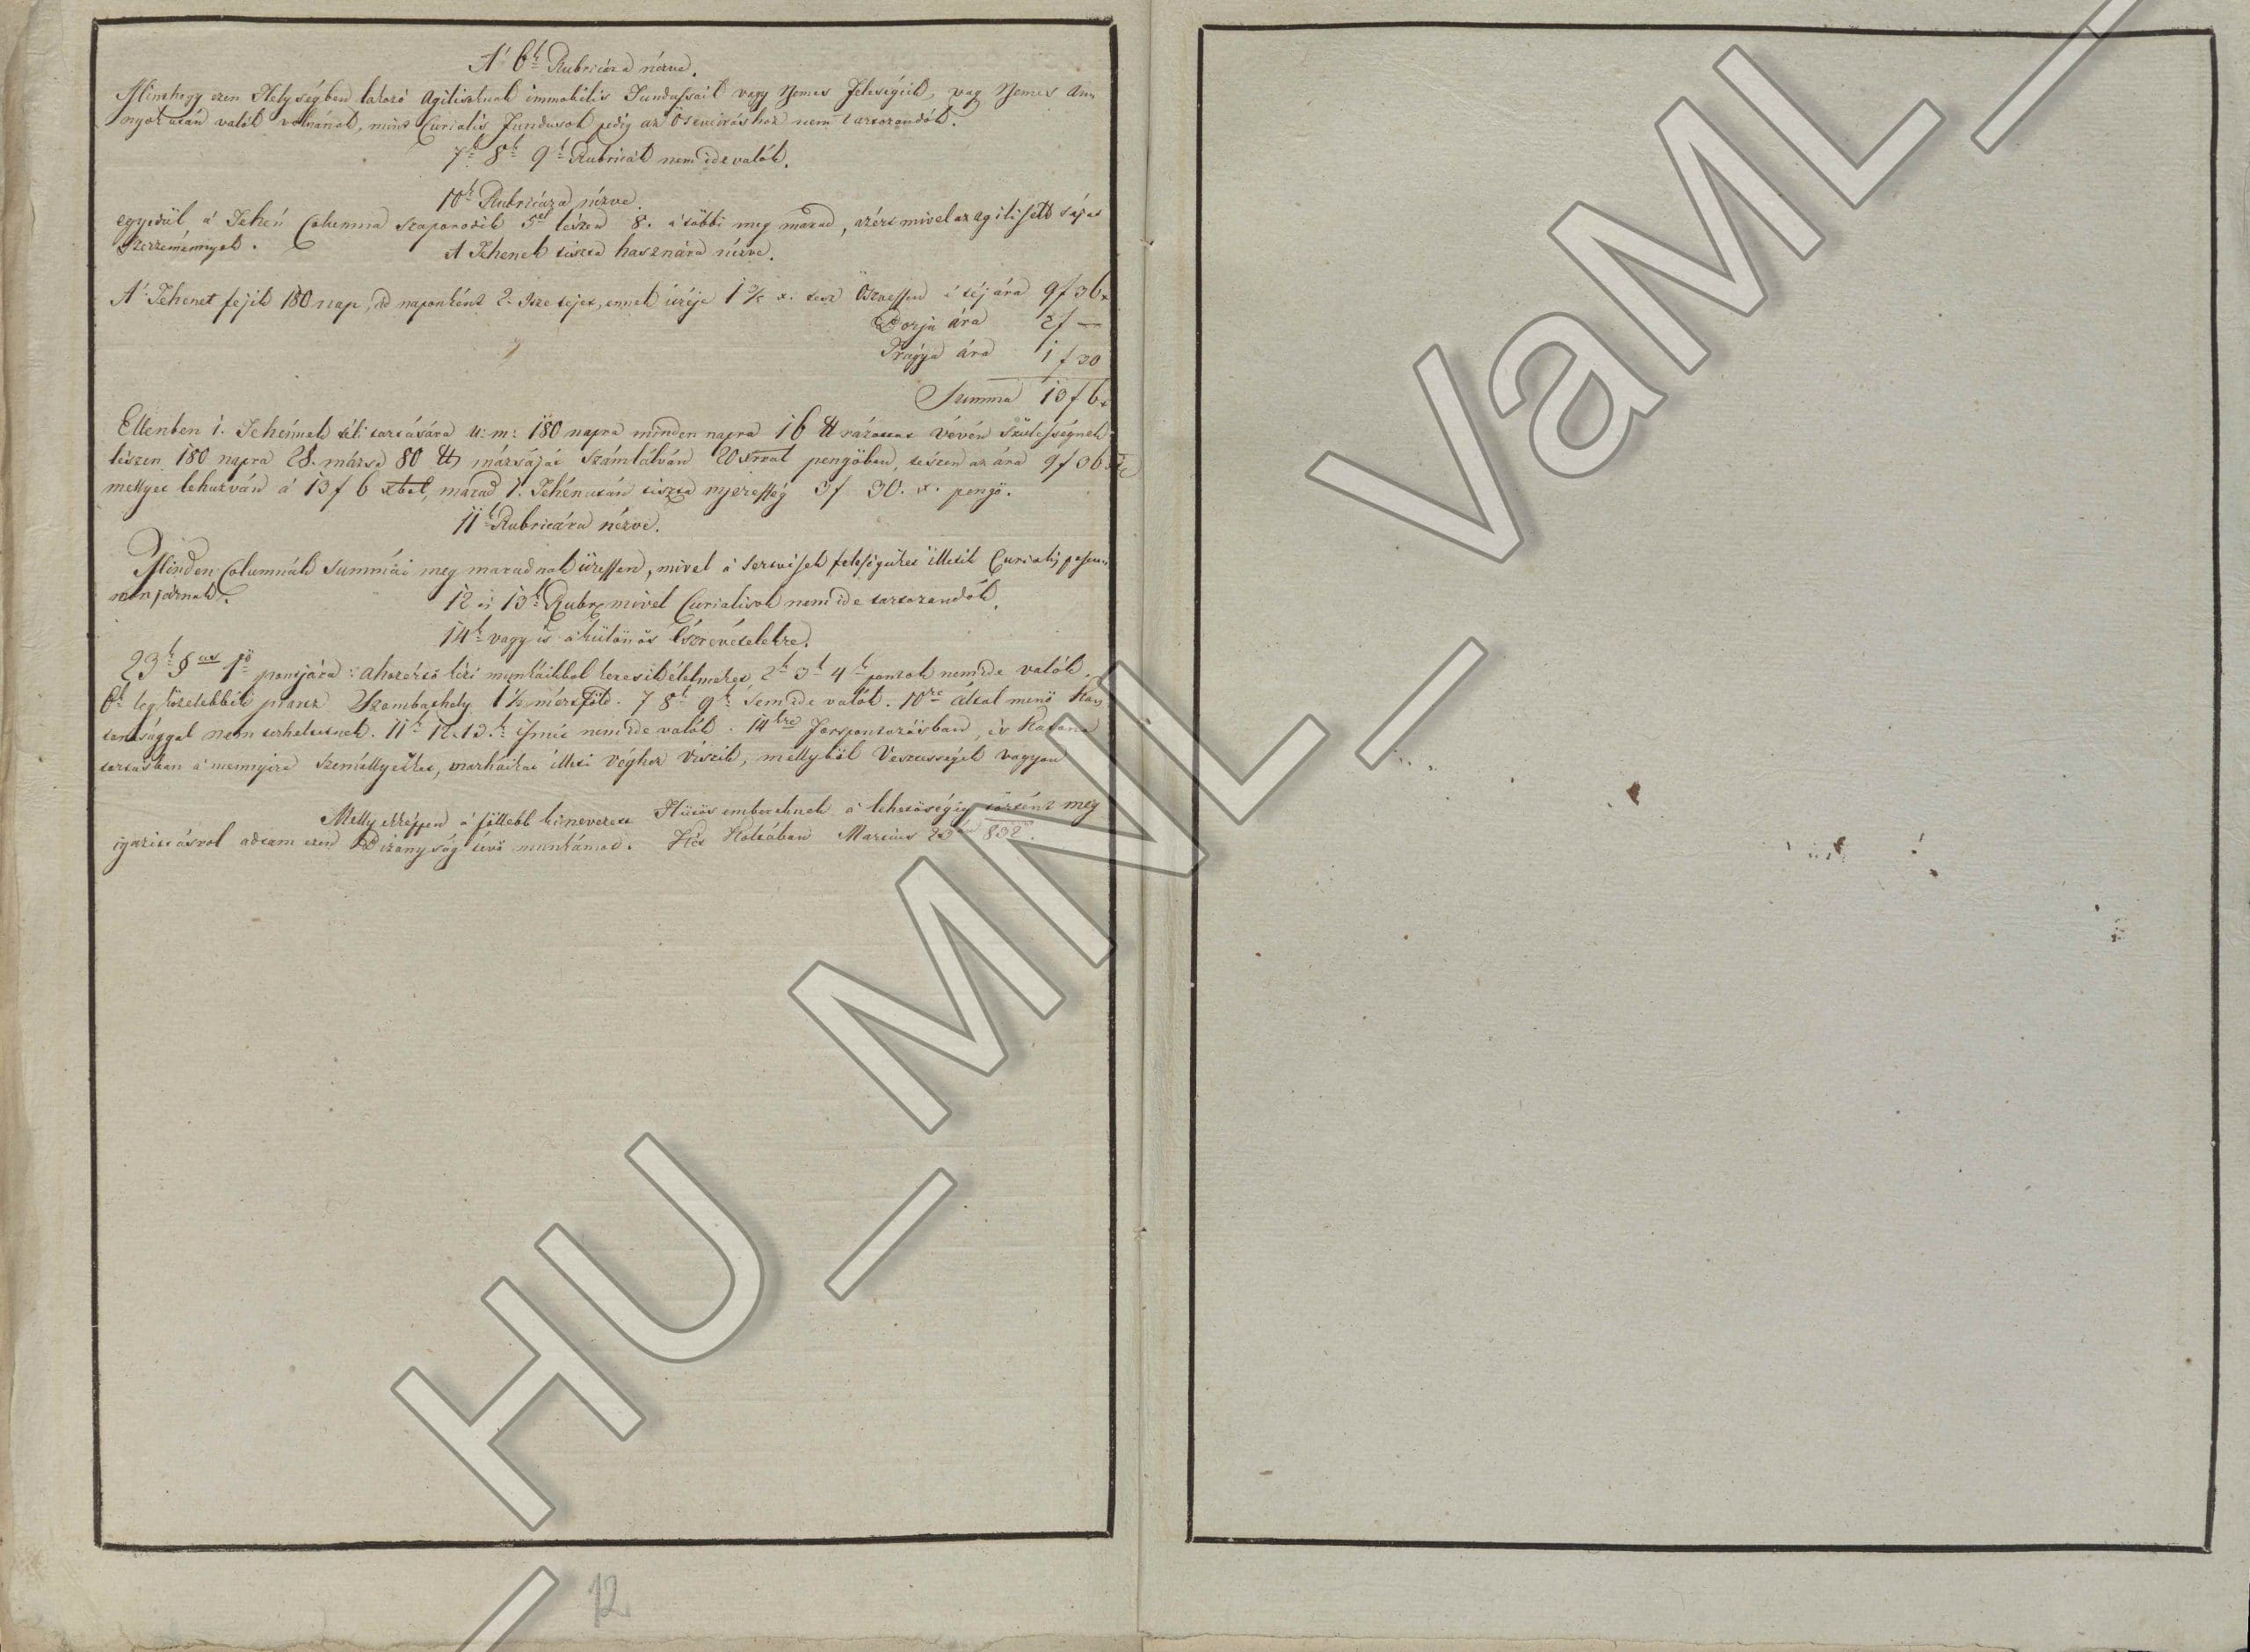 A' 6k Rubricára nézve.
Minthogy ezen Helységben lakozó Agiliseknek immobilis Fundussaik vagy Nemes Feleségeik, vagy Nemes Any
nyok után valók volnának, mint Curialis Fundusok pedig az Öszveiráshoz nem tartozandók.
7k 8k 9k Rubricák nem ide valók.
10k Rubricára nézve.
egyedül a' Tehén Columna szaporodik 5el lészen 8. a' többi meg marad, azért mivel az agilisek saját
szerzeményjek.
A Tehenek tiszta hasznára nézve.
A' Tehenet fejik 180 nap, ád naponként 2. Itze tejet, ennek itzéje 1 3/5 x. tesz Öszvessen a' téj ára 9f 36x
Borju ára 2f —
Trágya ára 1f 30
Summa 13f 6x
Ellenben 1. Tehénnek téli tartására u: m: 180 napra minden napra 16 ℔ vévén szükségesnek
lészen 180 napra 28. mázsa 80 ℔ mázsáját számlálván 20 xrral pengőben, teszen az ára 9f 36x
mellyet lehuzván a' 13f 6 xból, marad 1. Tehén után tiszta nyeresség 3f 30. x. pengö.
11k Rubricára nézve.
Minden Columnák Summái meg maradnak üressen, mivel a' feleségüket illetik Curialis
nem járnak.
12 és 13k Rubr. mivel Curialisok nem ide tartozandók.
14k vagy is a' különös Észrevételekre.
23k §us 1ö pontjára: kézi munkáikkal keresik élelmeket 2k 3k 4k pontok nem ide valók.
6k leg közelebbik piartz Szombathely 1 1/2 mértföld. 7 8k 9k sem ide valók. 10re által menö Ka
tonasággal nem terheltetnek. 11k 12. 13k ismét nem ide valók. 14kre Forspontozásban, és Katona
tartásban a' mennyire személlyeiket, marháikat illeti véghez viszik, mellyböl Veszteségek vagyon
Melly ekképpen a' föllebb kinevezett Hütös embereknek a' lehetőségig történt meg
igazitásrol adtam ezen Bizonyság tévö munkámat. Martius 23án 832.
12
HU_MNL_VaML_